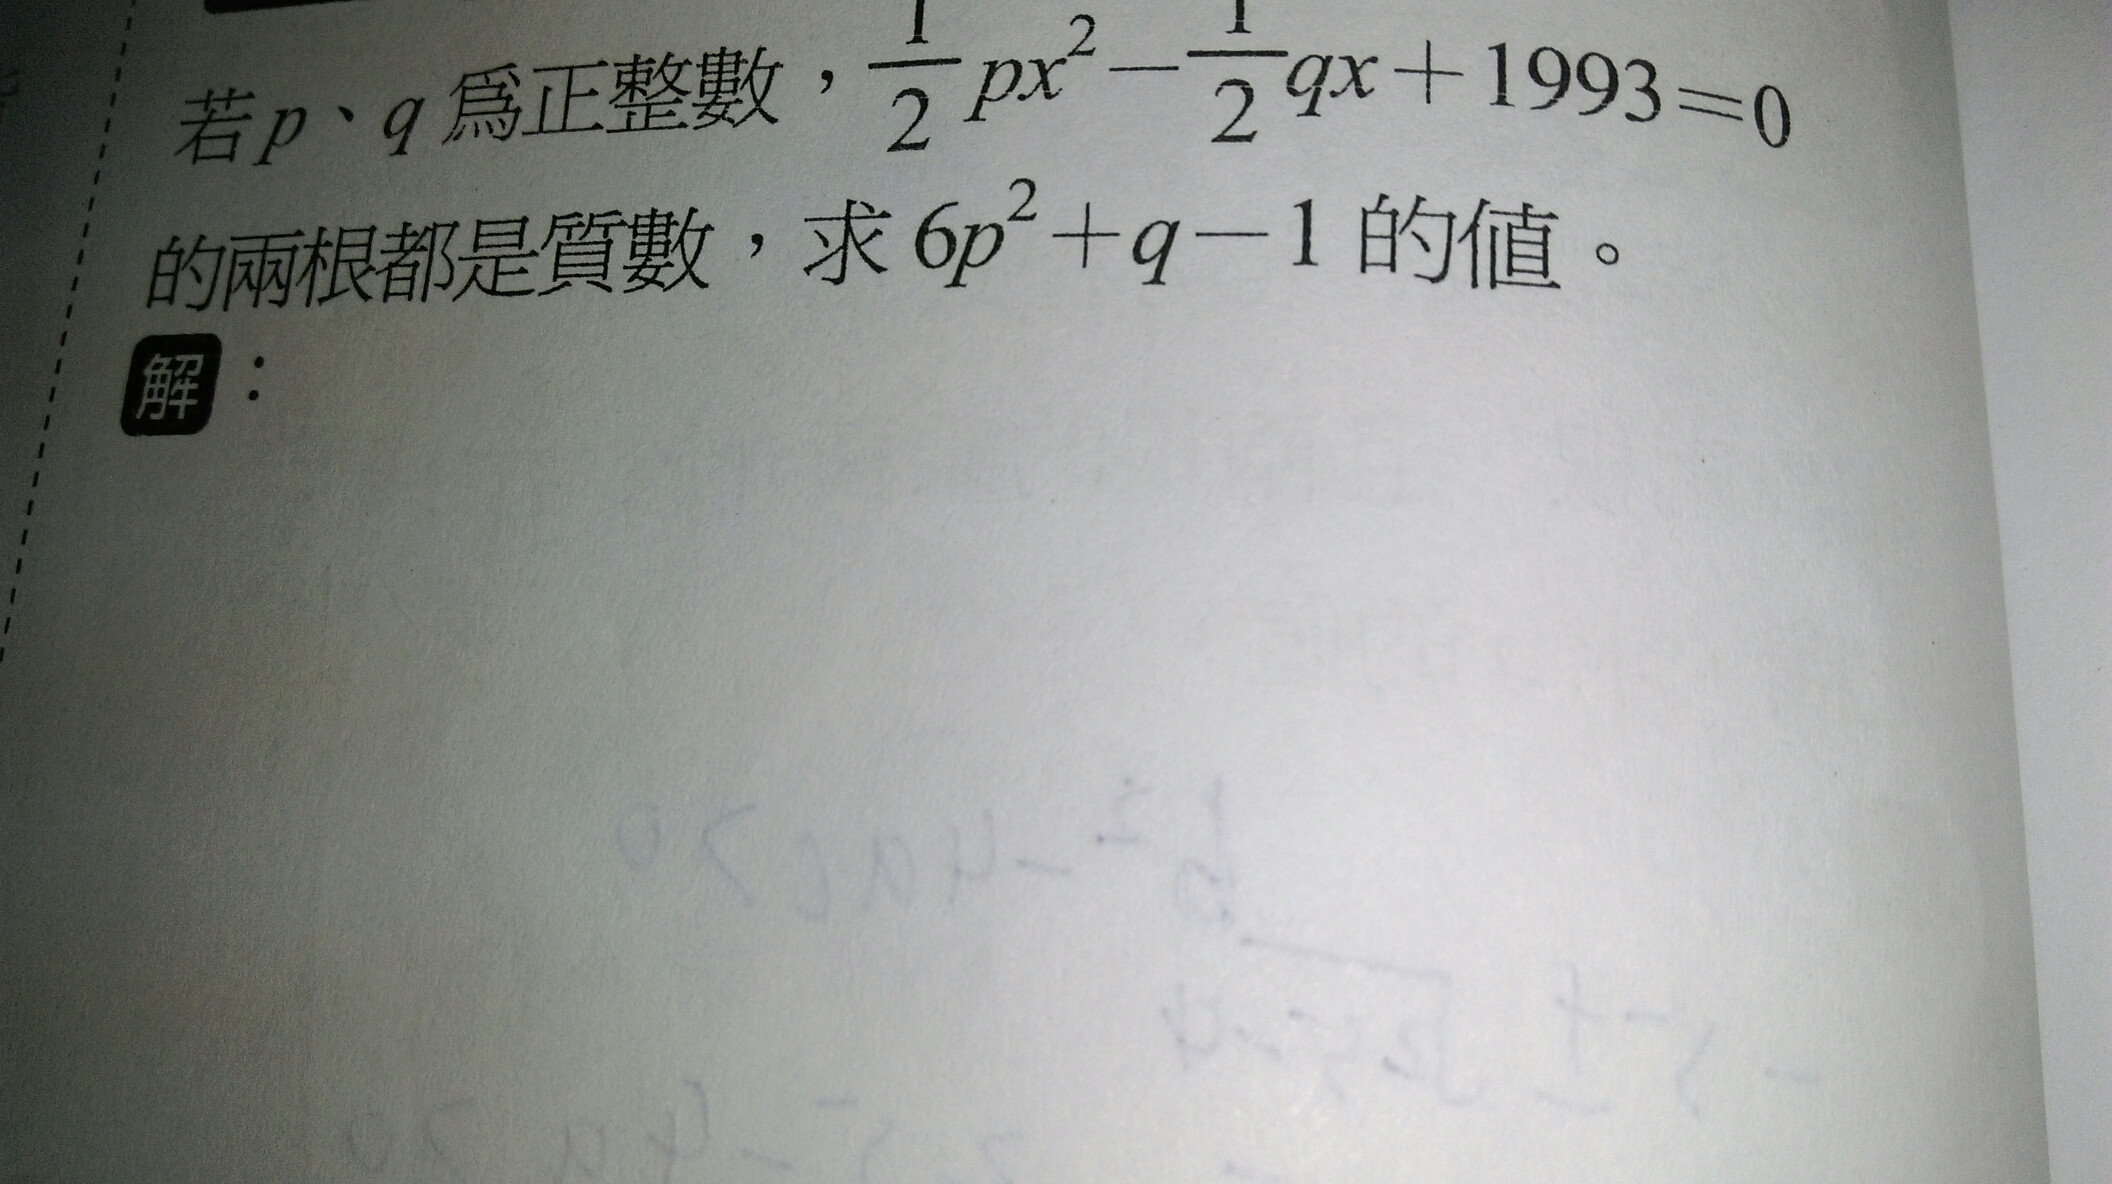 若p、q爲正整數，\frac{1}{2}px²－\frac{1}{2}qx＋1993＝0
的兩根都是質數，求6p²＋q－1的值。
解：